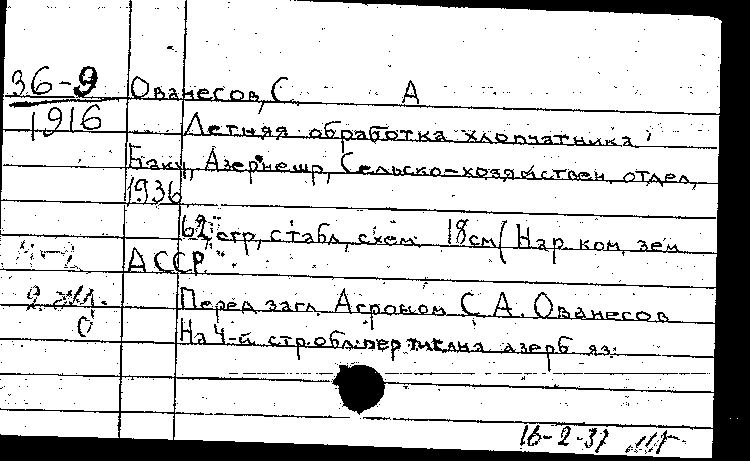 36-9
1916
Ованесов, С. А
Летняя обработка хлопчатника.
Баку, Азернешр, Сельско-хозяйствен. отдел,
1936
62 стр, с табл, схем. 18см (Нар. ком. зем
АССР).
2 экз.
Перед загл. Агроном С. А. Ованесов
На 4-й стр. обл. азерб. яз.
16-2-37